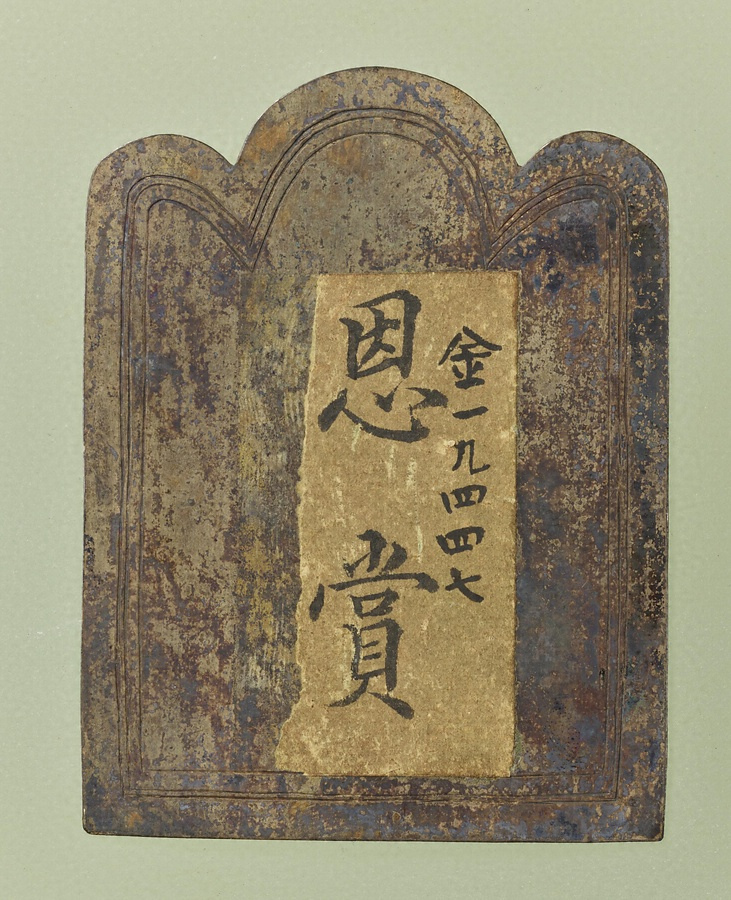 金一九四四七
恩賞